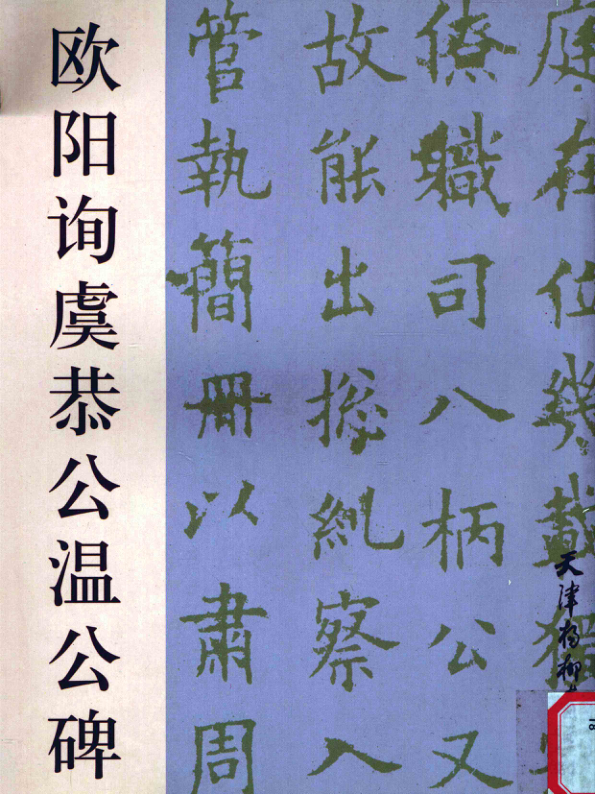 欧阳询虞恭公温公碑
庭在位几载
僚職司八柄公又
故能出揔糺察入
管執簡冊以肅周
天津杨柳